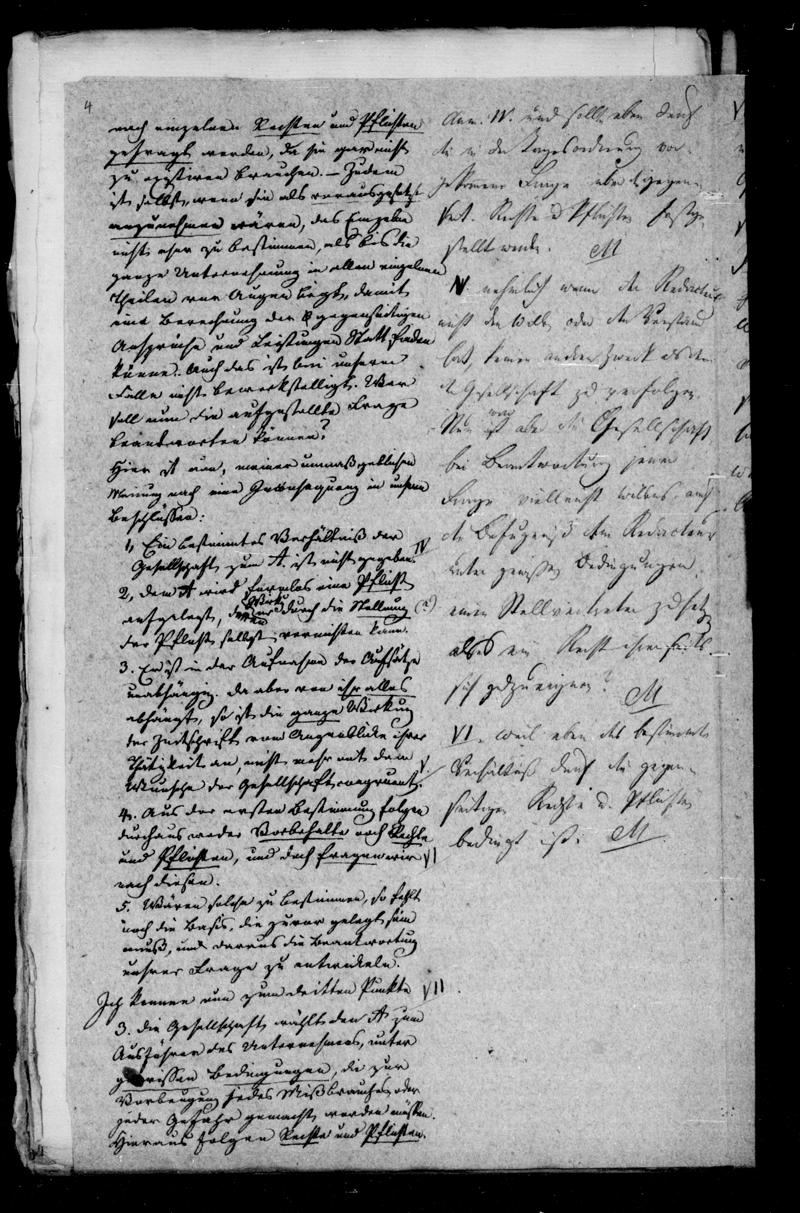 4
nach einzelnen Rechten und Pflichten
gefragt werden, da sie gar nicht
zu existiren brauchen. – Zudem
ist selbst, wenn sie als vorausgesetzt
anzunehmen wären, das Einzelne
nicht eher zu bestimmen, als bis die
ganze Unternehmung in allen einzelnen
Theilen vor Augen liegt, damit
eine Berechnung der gegenseitigen
Ansprüche und Leistungen Statt finden
könne. Auch das ist bei unserm
Falle nicht bewerkstelligt. Wer
soll nun die aufgestellte Frage
beantworten können?
Hier ist nun, meiner unmaßgeblichen
Meinung nach eine Inconsequenz in unsern
Beschlüssen:
1, Ein bestimmtes Verhältniß der
Gesellschaft zum A. ist nicht gegeben. IV
2, dem A wird formlos eine Pflicht
aufgelegt, durch die Stellung (a)
der Pflicht selbst vernichten kann.
3. Er ist in der Aufnahme der Aufsätze
unabhängig. Da aber von ihr alles
abhängt, so ist die ganze Wirkung
der Zeitschrift vom Augenblicke ihrer
Thätigkeit an, nicht mehr mit dem V.
Wunsche der Gesellschaft congruent.
4. Aus der ersten Bestimmung folgen
durchaus weder Vorbehalte noch Rechte
und Pflichten, und doch fragen wir VI
nach diesen.
5. Wären solche zu bestimmen, so fehlt
noch die Basis, die zuvor gelegt sein
muß, und daraus die Beantwortung
unsrer Frage zu entwickeln.
Ich komme nun zum dritten Punkte VII
3. Die Gesellschaft wählt den A zum
Ausführer des Unternehmens, unter
gewissen Bedingungen, die zur
Vorbeugung jedes Mißbrauches oder
jeder Gefahr gemacht werden müssen.
Hieraus folgen Rechte und Pflichten.
Anm. IV. und sollte eben durch
die in der Tagesordnung vor-
Frage eben die gegen-
seit. Rechte u Pflichten festge
stellt werden. M
V nehmlich wenn der Redacteur
nicht den Willen oder den Verstand
hat, keinen andern Zweck als den
d Gesellschaft zu verfolgen.
Nun ist aber die Gesellschaft
bei Beantwortung jener
Frage vielleicht Willens, auch
die Befugniß dem Redacteur
unter gewissen Bedingungen
einen Stellvertreter zu setzen
als ein Recht ihrerseits
sich zuzueignen? M
VI. weil eben das bestimmte
Verhältniß durch die gegen-
seitigen Rechte u. Pflichten
bedingt ist. M